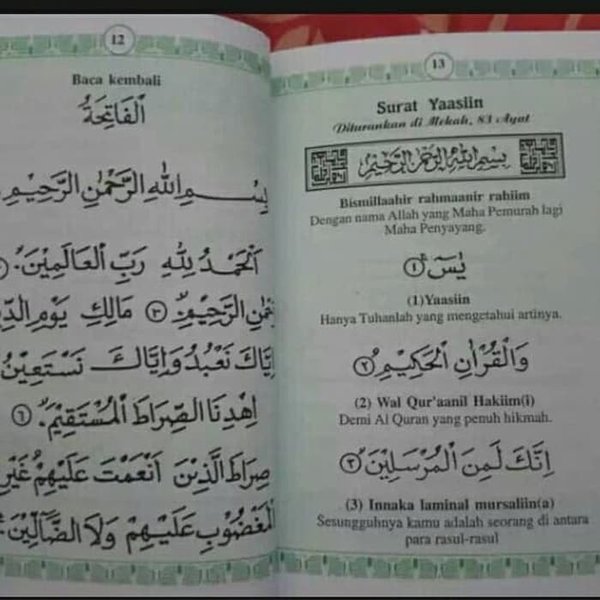 12
Baca kembali
اَلْفَاتِحَةُ
بِسْمِ اللهِ الرَّحْمٰنِ الرَّحِيْمِ
اَلْحَمْدُ لِلّٰهِ رَبِّ الْعَالَمِيْنَ
الرَّحِيْمِ ٣ مَالِكِ يَوْمِ
اِيَّاكَ نَعْبُدُ وَاِيَّاكَ نَسْتَعِيْنُ
اِهْدِنَا الصِّرَاطَ الْمُسْتَقِيْمَ ٦
صِرَاطَ الَّذِيْنَ اَنْعَمْتَ عَلَيْهِمْ غَيْرِ
الْمَغْضُوْبِ عَلَيْهِمْ وَلَا الضَّالِّيْنَ
13
Surat Yaasiin
Diturunkan di Mekah, 83 Ayat
بِسْمِ اللهِ الرَّحْمٰنِ الرَّحِيْمِ
Bismillaahir rahmaanir rahiim
Dengan nama Allah yang Maha Pemurah lagi
Maha Penyayang.
يٰسٓ ١
(1)Yaasiin
Hanya Tuhanlah yang mengetahui artinya.
وَالْقُرْاٰنِ الْحَكِيْمِ ٢
(2) Wal Qur'aanil Hakiim(i)
Demi Al Quran yang penuh hikmah.
اِنَّكَ لَمِنَ الْمُرْسَلِيْنَ ٣
(3) Innaka laminal mursaliin(a)
Sesungguhnya kamu adalah seorang di antara
para rasul-rasul